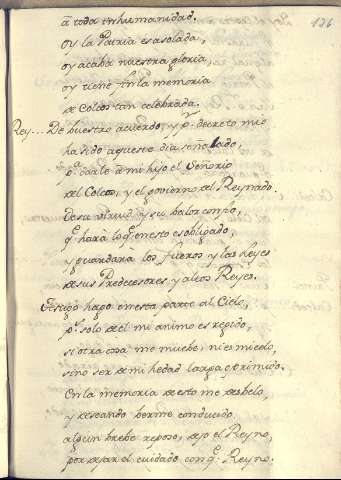 136
a toda inhumanidad.
oy la Patria es asolada,
oy acaba nuestra gloria,
oy tiene fin la memoria
de Colcos tan celebrada.
Rey... De buestro acuerdo, y pr. decreto mio
ha sido aqueste dia señalado,
pa. darle a mi hijo el Señorio
de Colcos, y el govierno del Reynado.
De su virtud y su balor confio,
q. hará lo q. en esto es obligado,
y guardara los fueros y las leyes
de sus Predecesores y altos Reyes.
Testigo hago en esta parte al Cielo,
pr. solo de el mi animo es regido,
si otra cosa me muebe, ni es mi celo,
sino ser de mi hedad larga oprimido.
En la memoria de esto me desbelo,
y deseando berme conducido
algun brebe reposo, dejo el Reyno,
por dejar el cuidado con q. Reyno.